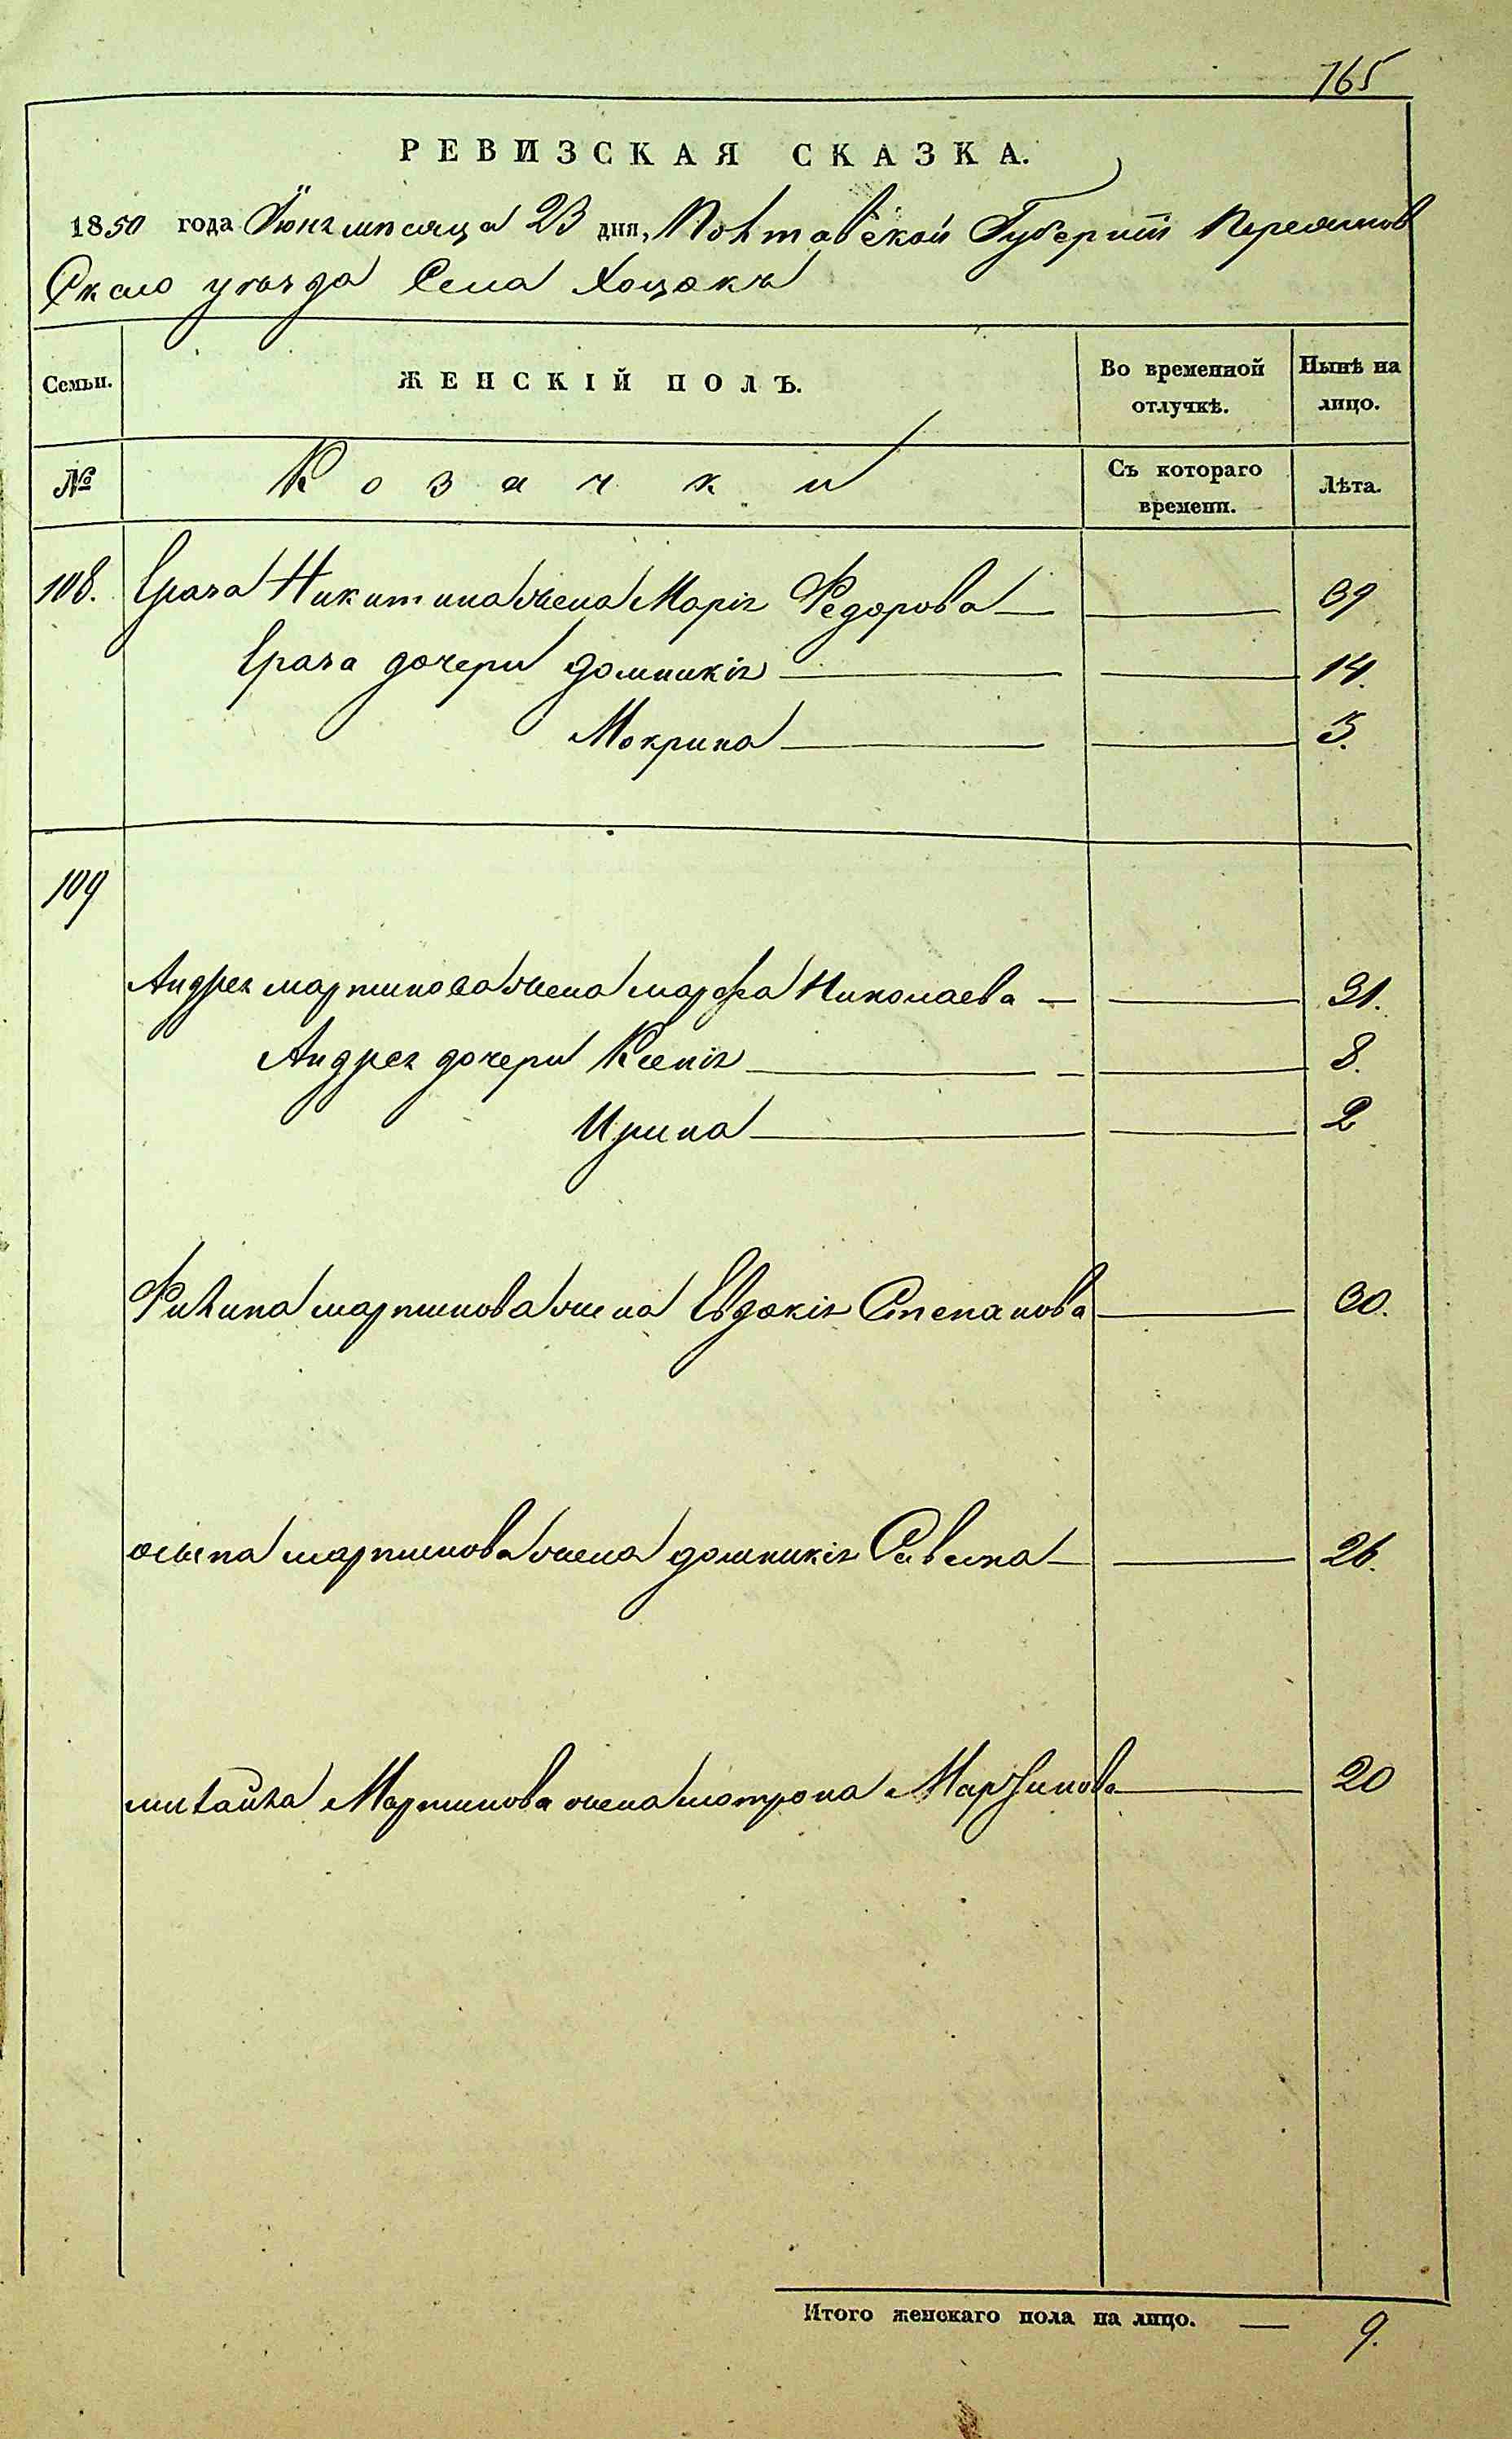 165
РЕВИЗСКАЯ СКАЗКА.
1850 года Іюня месяца 23 дня, Полтавской Губерніи Переяслов
Скаго уезда Села Хоцокъ
Семьи. ЖЕНСКІЙ ПОЛЪ. Во временной отлучкѣ. Нынѣ на лицо.
№ Козачки Съ котораго времени. Лѣта.
108. Ераза Никитина жена Марія Федорова — — 39
Ераза дочери домникія — — 14.
Мокрина — — 3.
109
Андрея мартинова жена марфа Николаева — — 31.
Андрея дочери Ксенія — — 8.
Ирина — — 2
Филипа мартинова жена Евдокія Степанова — 30.
осипа мартинова жена домникія Савина — — 26.
михайла Мартинова жена мотрона Мартинова — 20
Итого женскаго пола на лицо. — 9.